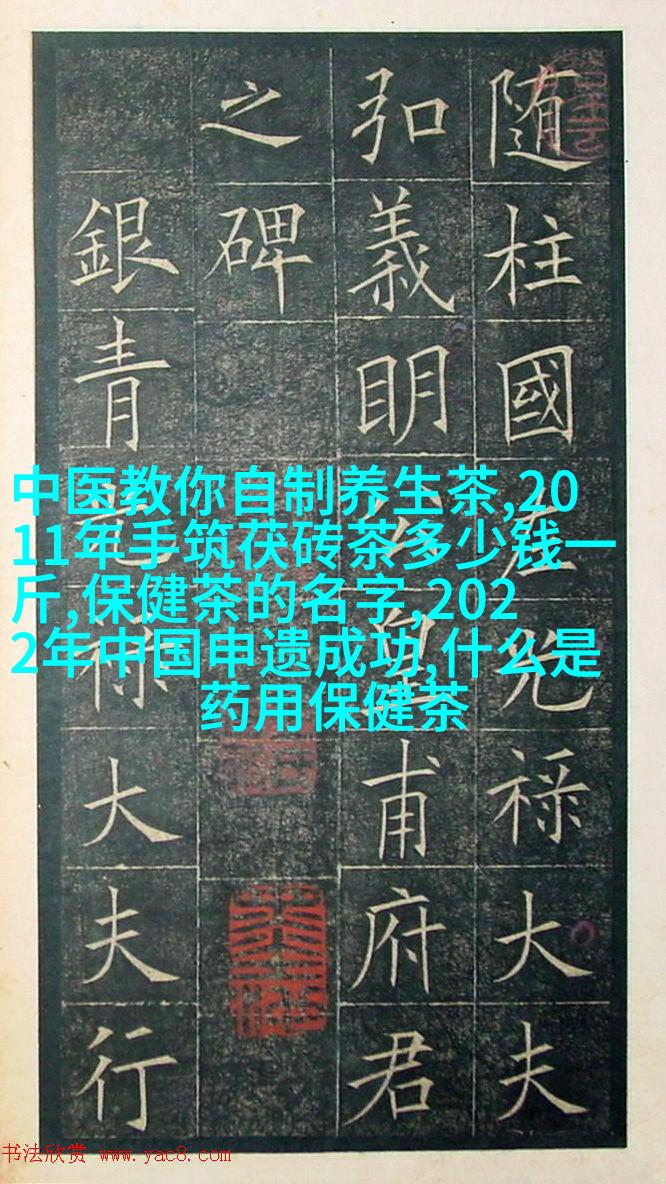 随柱國左光祿大夫
弘義明公皇甫府君
之碑
銀青光祿大夫行
中医教你自制养生茶,20
11年手筑茯砖茶多少钱一
斤,保健茶的名字,202
2年中国申遗成功,什么是
药用保健茶
书法欣赏 www.yac8.com